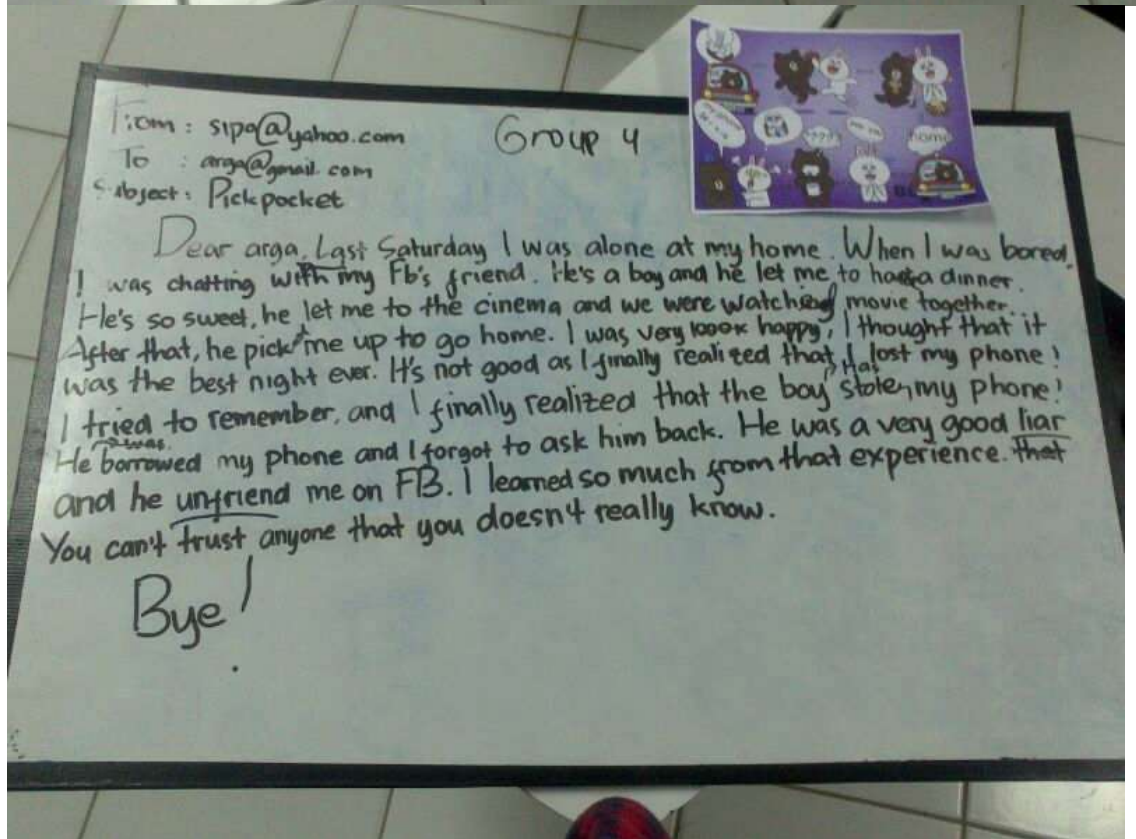 From : sipa@yahoo.com
Group 4
To : arga@gmail.com
Subject : Pickpocket
Dear arga, Last Saturday I was alone at my home. When I was bored,
I was chatting with my Fb's friend. He's a boy and he let me to had a dinner.
He's so sweet, he let me to the cinema and we were watched movie together.
After that, he pick me up to go home. I was very 1000x happy, I thought that it
was the best night ever. It's not good as I finally realized that, I lost my phone!
I tried to remember, and I finally realized that the boy has stolen my phone!
He was borrowed my phone and I forgot to ask him back. He was a very good liar
and he unfriend me on FB. I learned so much from that experience. that
You can't trust anyone that you doesn't really know.
Bye!
????
home